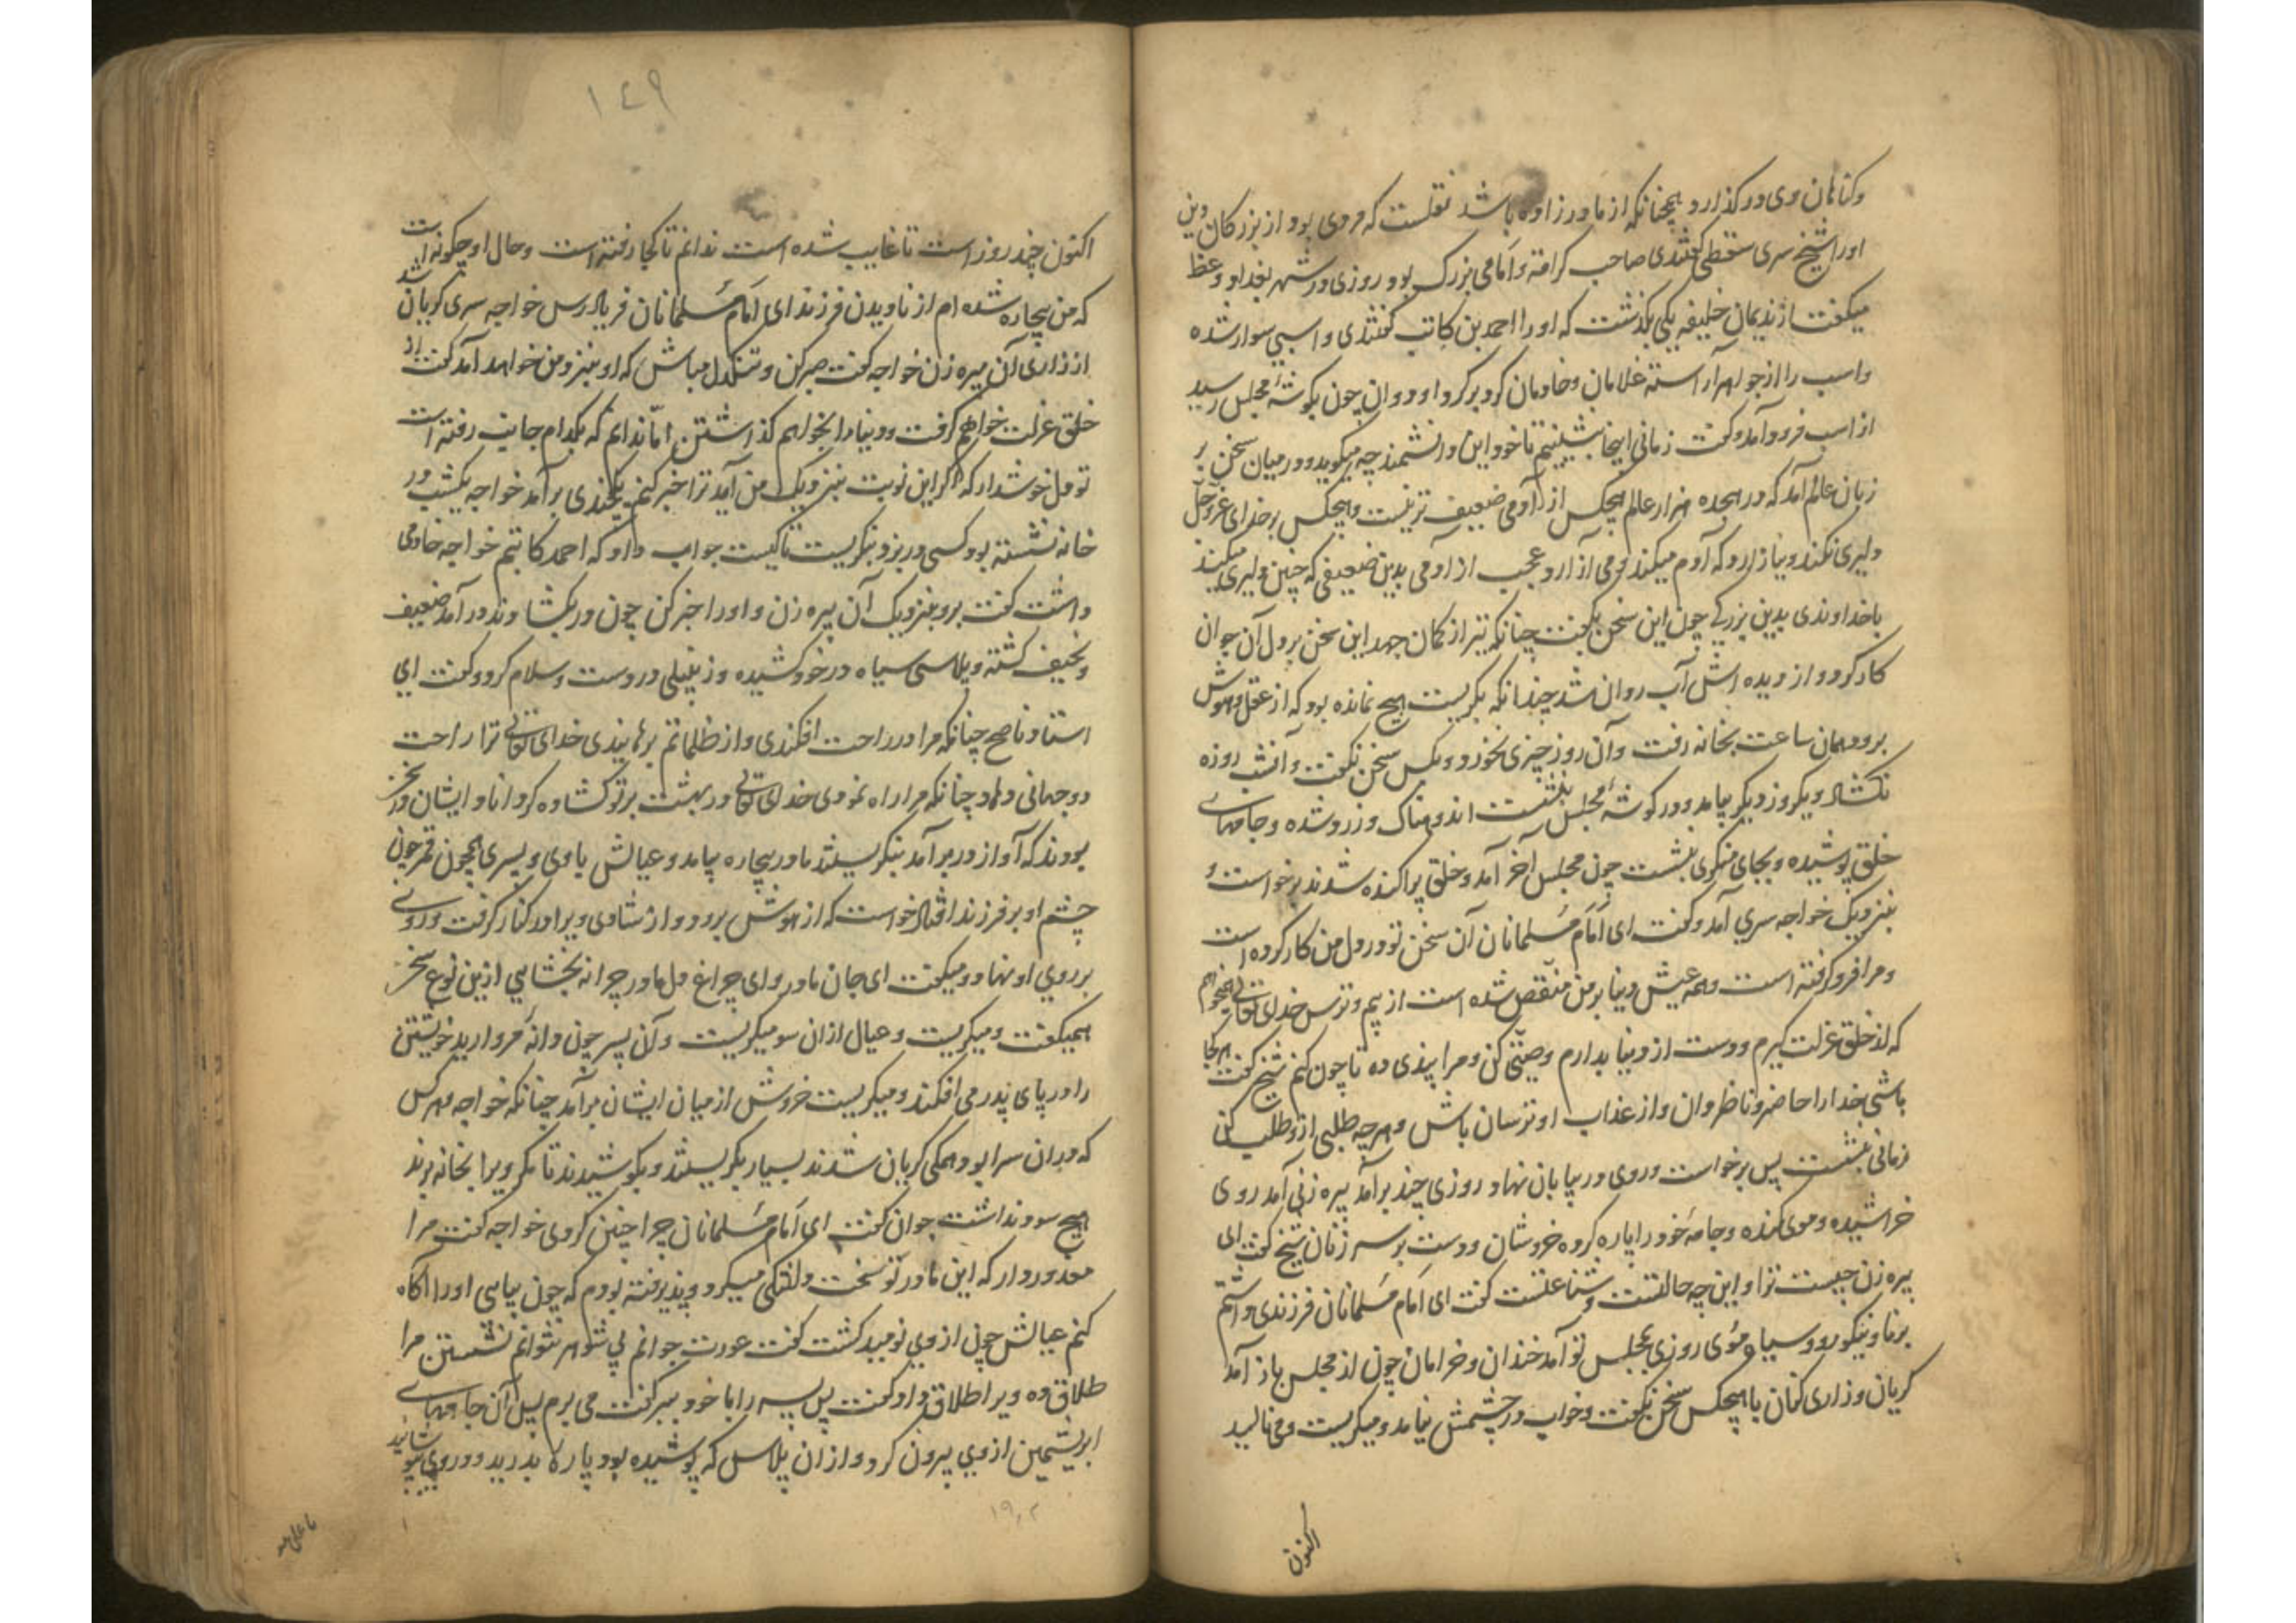 وکناهان وی درکذارد همچنانکه از مادر زاده باشد نقلست که مردی بود از بزرکان دین
اورا شیخ سری سقطی کفتندی صاحب کرامت و امامی بزرک بود روزی در شهر بغداد وعظ
میکفت از ندیمان خلیفه یکی بکذشت که اورا احمد بن کاتب کفتندی و اسپی سوار شده
واسب را از جواهر آراسته غلامان وخادمان کرد برکرد او دوان چون بکوشۀ مجلس رسید
از اسب فرود آمد وکفت زمانی اینجا بنشینیم تا خود این دانشمند چه میکوید ودر میان سخن بر
زبان عالم آمد که در هجده هزار عالم هیچکس از آدمی ضعیف تر نیست وهیچکس بر خدای عزوجل
دلیری نکند ونیازارد که آدم میکند ومی آزارد عجب از آدمی بدین ضعیفی که چنین دلیری میکند
باخداوندی بدین بزرکی چون این سخن بکفت چنانکه تیر از کمان جهد این سخن بر دل آن جوان
کار کرد و از دیده اش آب روان شد چندانکه بکریست هیچ نمانده بود که از عقل وهوش
برود همان ساعت بخانه رفت وآن روز چیزی نخورد وبکس سخن نکفت وآنشب روزه
نکشاد ویکروز دیکر بیامد ودر کوشۀ مجلس بنشست اندوهناک وزرد شده وجامهاے
خلق پوشیده وبجای منکری بنشست چون مجلس آخر آمد وخلق پراکنده شدند برخواست و
بنزدیک خواجه سری آمد وکفت ای امام مسلمانان آن سخن تو در دل من کار کرده است
ومرا فرو کرفته است وهمه عیش دنیا بر من منقص شده است از بیم وترس خدای تعالی میخواهم
که از خلق عزلت کیرم ودست از دنیا بدارم وصیتی کن ومرا پندی ده تا چون کنم شیخ کفت هرکجا
باشی خدا را حاضر وناظر دان واز عذاب او ترسان باش وهرچه طلبی ازو طلب کن
زمانی بنشست پس برخواست وروی در بیابان نهاد روزی چند برآمد پیره زنی آمد روی
خراشیده وموی کنده وجامۀ خود را پاره کرده خروشان ودست بر سر زنان شیخ کفت ای
پیره زن چیست ترا واین چه حالتست وشناعتست کفت ای امام مسلمانان فرزندی داشتم
برنا ونیکورو وسیاه موی روزی بمجلس تو آمد خندان وخرامان چون از مجلس باز آمد
کریان وزاری کنان با هیچکس سخن نکفت وخواب در چشمش نیامد ومیکریست ومی نالید
اکنون
١٤٩
اکنون چند روز است تا غایب شده است ندانم تا کجا رفته است وحال او چکونه است
که من بیچاره شده ام از نادیدن فرزند ای امام مسلمانان فریاد رس خواجه سری کریان شد
از زاری آن پیره زن خواجه کفت صبر کن وتنکدل مباش که او بنزد من خواهد آمد کفت از
خلق عزلت خواهم کرفت ودنیا را بخواهم کذاشتن اما ندانم که بکدام جایب رفته است
تو دل خوشدار که اکر این نوبت بنزدیک من آید ترا خبر کنم یکچندی برآمد خواجه یکشب در
خانه نشسته بود کسی در بزد بنکریست تا کیست جواب داد که احمد کاتبم خواجه خادمی
داشت کفت برو بنزدیک آن پیره زن واورا خبر کن چون در بکشادند درآمد ضعیف
ونحیف کشته وپلاسی سیاه در خود کشیده وزنبیلی در دست وسلام کرد وکفت ای
استاد ناصح چنانکه مرا در راحت افکندی واز ظلماتم برهانیدی خدای تعالی ترا راحت
دو جهانی دهاد چنانکه مرا راه نمودی خدای تعالی در بهشت بر تو کشاده کرداناد ایشان درین سخن
بودند که آواز در برآمد بنکریستند مادر بیچاره بیامد وعیالش با وی وپسری همچون قمر چون
چشم او بر فرزند افتاد خواست که از هوش برود واز شادی ویرا در کنار کرفت وروے
بر روی او نهاد ومیکفت ای جان مادر وای چراغ دل مادر چرا نه بخشایی ازین نوع سخن
همیکفت ومیکریست وعیال ازان سو میکریست وآن پسر چون دانۀ مروارید خویشتن
را در پای پدر می افکند ومیکریست خروش از میان ایشان برآمد چنانکه خواجه وهر کس
که دران سرا بود همکی کریان شدند بسیار بکریستند وبکوشیدند تا مکر ویرا بخانه برند
هیچ سود نداشت جوان کفت ای امام مسلمانان چرا چنین کردی خواجه کفت مرا
معذور دار که این مادر تو سخت دلتنکی میکرد وپذیرفته بودم که چون بیایی اورا آکاه
کنم عیالش چون از وی نومید کشت کفت عورت جوانم بی شوهر نتوانم نشستن مرا
طلاق ده ویرا طلاق داد وکفت پس پسر را با خود ببر کفت می برم پس آن جامهاے
ابریشمین از وی بیرون کرد وازان پلاس که پوشیده بود پارۀ بدرید ودر وی پوشانید